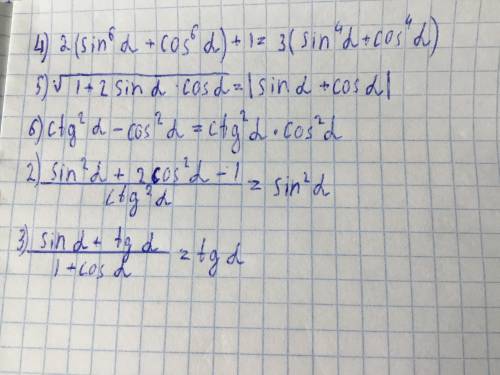 4) 2(sin⁶α + cos⁶α) + 1 = 3(sin⁴α + cos⁴α)
5) √(1 + 2 sin α · cos α) = |sin α + cos α|
6) ctg²α - cos²α = ctg²α · cos²α
2) (sin²α + 2cos²α - 1) / ctg²α = sin²α
3) (sin α + tg α) / (1 + cos α) = tg α